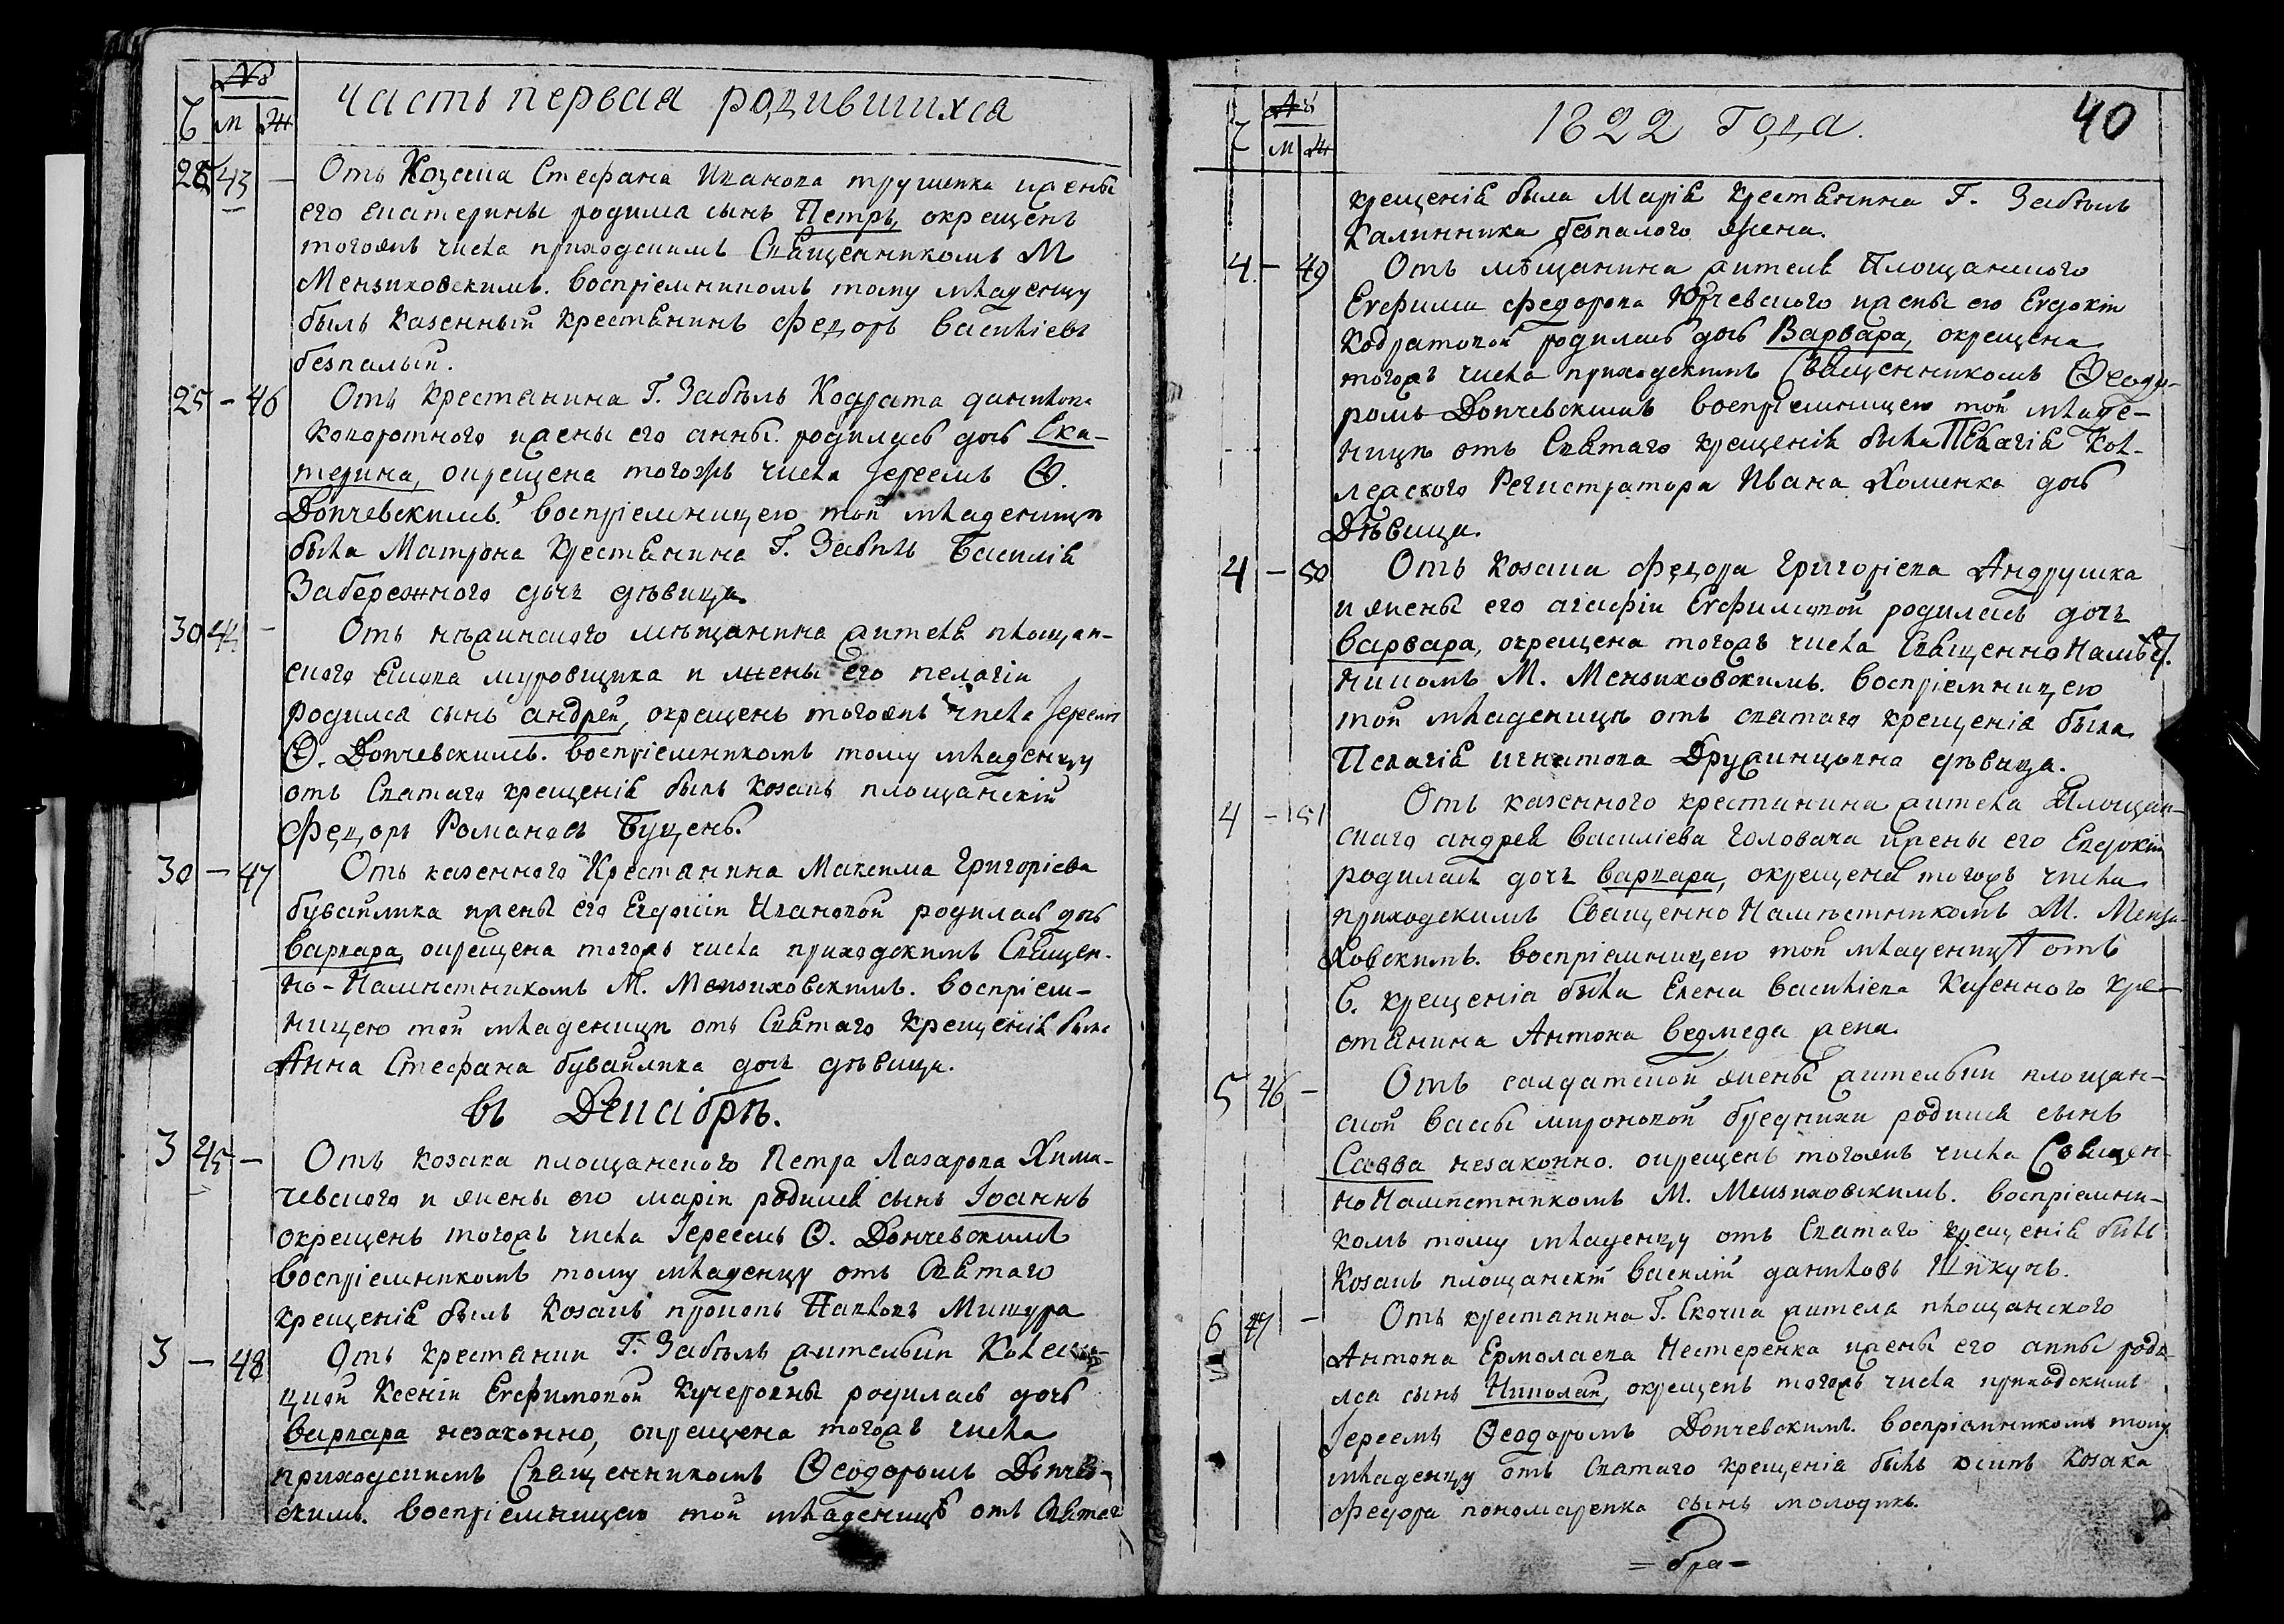 №
часть первая родившихся
м ж
28 43 — Отъ Козака Стефана Иванова трушенка ижены
его екатерины родился сынъ Петръ, окрещенъ
тогожъ числа приходскимъ Священникомъ М
Мензиховскимъ. воспріемникомъ тому младенцу
былъ казенный крестянинъ Федоръ василіевъ
безпалый.
25 — 46 Отъ крестянина Г. Забѣлъ Кодрата данилова
коворотного ижены его анны. родилась дочь Ека-
терина, окрещена тогожъ числа Іереемъ Ѳ.
Дончевскимъ. воспріемницею той младеницѣ
была Матрона крестянина Г. Забѣлъ Василія
Забережного дочъ дѣвица.
30 44 — Отъ нѣжинского мѣщанина жителя площан-
ского Емока муровщика и жены его пелагіи
родился сынъ андрей, окрещенъ тогожъ числа Іереемъ
Ѳ. Дончевскимъ. воспріемникомъ тому младенцу
отъ Святаго крещенія былъ козакъ площанскій
Федоръ Романовъ Буцень.
30 — 47 Отъ казенного Крестянина Максима Григоріева
бувайлика ижены его Евдокіи Ивановой родилась дочь
варвара, окрещена тогожъ числа приходскимъ Священ-
но-Намѣстникомъ М. Мензиховскимъ. воспріем-
ницею той младеницѣ отъ Святаго Крещенія была
Анна Стефана бувайлика дочъ дѣвица.
въ Декабрѣ.
3 45 — Отъ козака площанского Петра Лазарова Хима-
чевского и жены его маріи родился сынъ Іоаннъ
окрещенъ тогожъ числа Іереемъ Ѳ. Дончевскимъ
воспріемникомъ тому младенцу отъ Святаго
крещенія былъ Козакъ прокопъ Павловъ Мишура
3 — 48 Отъ крестянки Г. Забѣлъ жительки
Ксеніи Евфимовой Кучеровны родилась дочь
варвара незаконно, окрещена тогожъ числа
приходскимъ Священникомъ Ѳеодоромъ Дончев-
скимъ. воспріемницею той младеницѣ отъ Святаго
№
1822 Года.
40
м ж
крещенія была Марія крестянина Г. Забѣлъ
Калинника безпалого жена.
4 — 49 Отъ мѣщанина жителя Площанского
Евфима федорова Юрчевского ижены его Евдокіи
Кодратовой родилась дочь Варвара, окрещена
тогожъ числа приходскимъ Священникомъ Ѳеодо-
ромъ Дончевскимъ воспріемницею той младе-
ницѣ отъ Святаго крещенія была Пелагія Кол-
лежского Регистратора Ивана Хоменка дочь
Дѣвица.
4 — 50 Отъ козака Федора Григоріева Андрушка
и жены его агафіи Евфимовой родилась дочъ
варвара, окрещена тогожъ числа Священно Намѣст.
никомъ М. Мензиховскимъ. воспріемницею
той младеницѣ отъ святаго крещенія была
Пелагія игнатова Дружинцовна дѣвица.
4 — 51 Отъ казенного крестянина жителя Площан-
скаго андрея василіева Головача ижены его Евдокіи
родилась дочъ варвара, окрещена тогожъ числа
приходскимъ Священно Намѣстникомъ М. Мензи-
ховскимъ. воспріемницею той младеницѣ отъ
С. крещенія была Елена василіева Казенного кре-
стянина Антона ведмеда жена.
5 46 — Отъ салдатской жены жительки площан-
ской вассы мироновой бредихи родился сынъ
Савва незаконно. окрещенъ тогожъ числа Священ-
ноНамѣстникомъ М. Мензиховскимъ. воспріемни-
комъ тому младенцу отъ Святаго крещенія былъ
Козакъ площанскій василій даниловъ Шикунъ.
6 47 — Отъ крестянина Г. жителя площанского
Антона Ермолаева Нестеренка ижены его анны роди-
лся сынъ Николай, окрещенъ тогожъ числа приходскимъ
Іереемъ Ѳеодоромъ Дончевскимъ. воспріемникомъ тому
младенцу отъ Святаго крещенія былъ осипъ козака
федора пономаренка сынъ молодикъ.